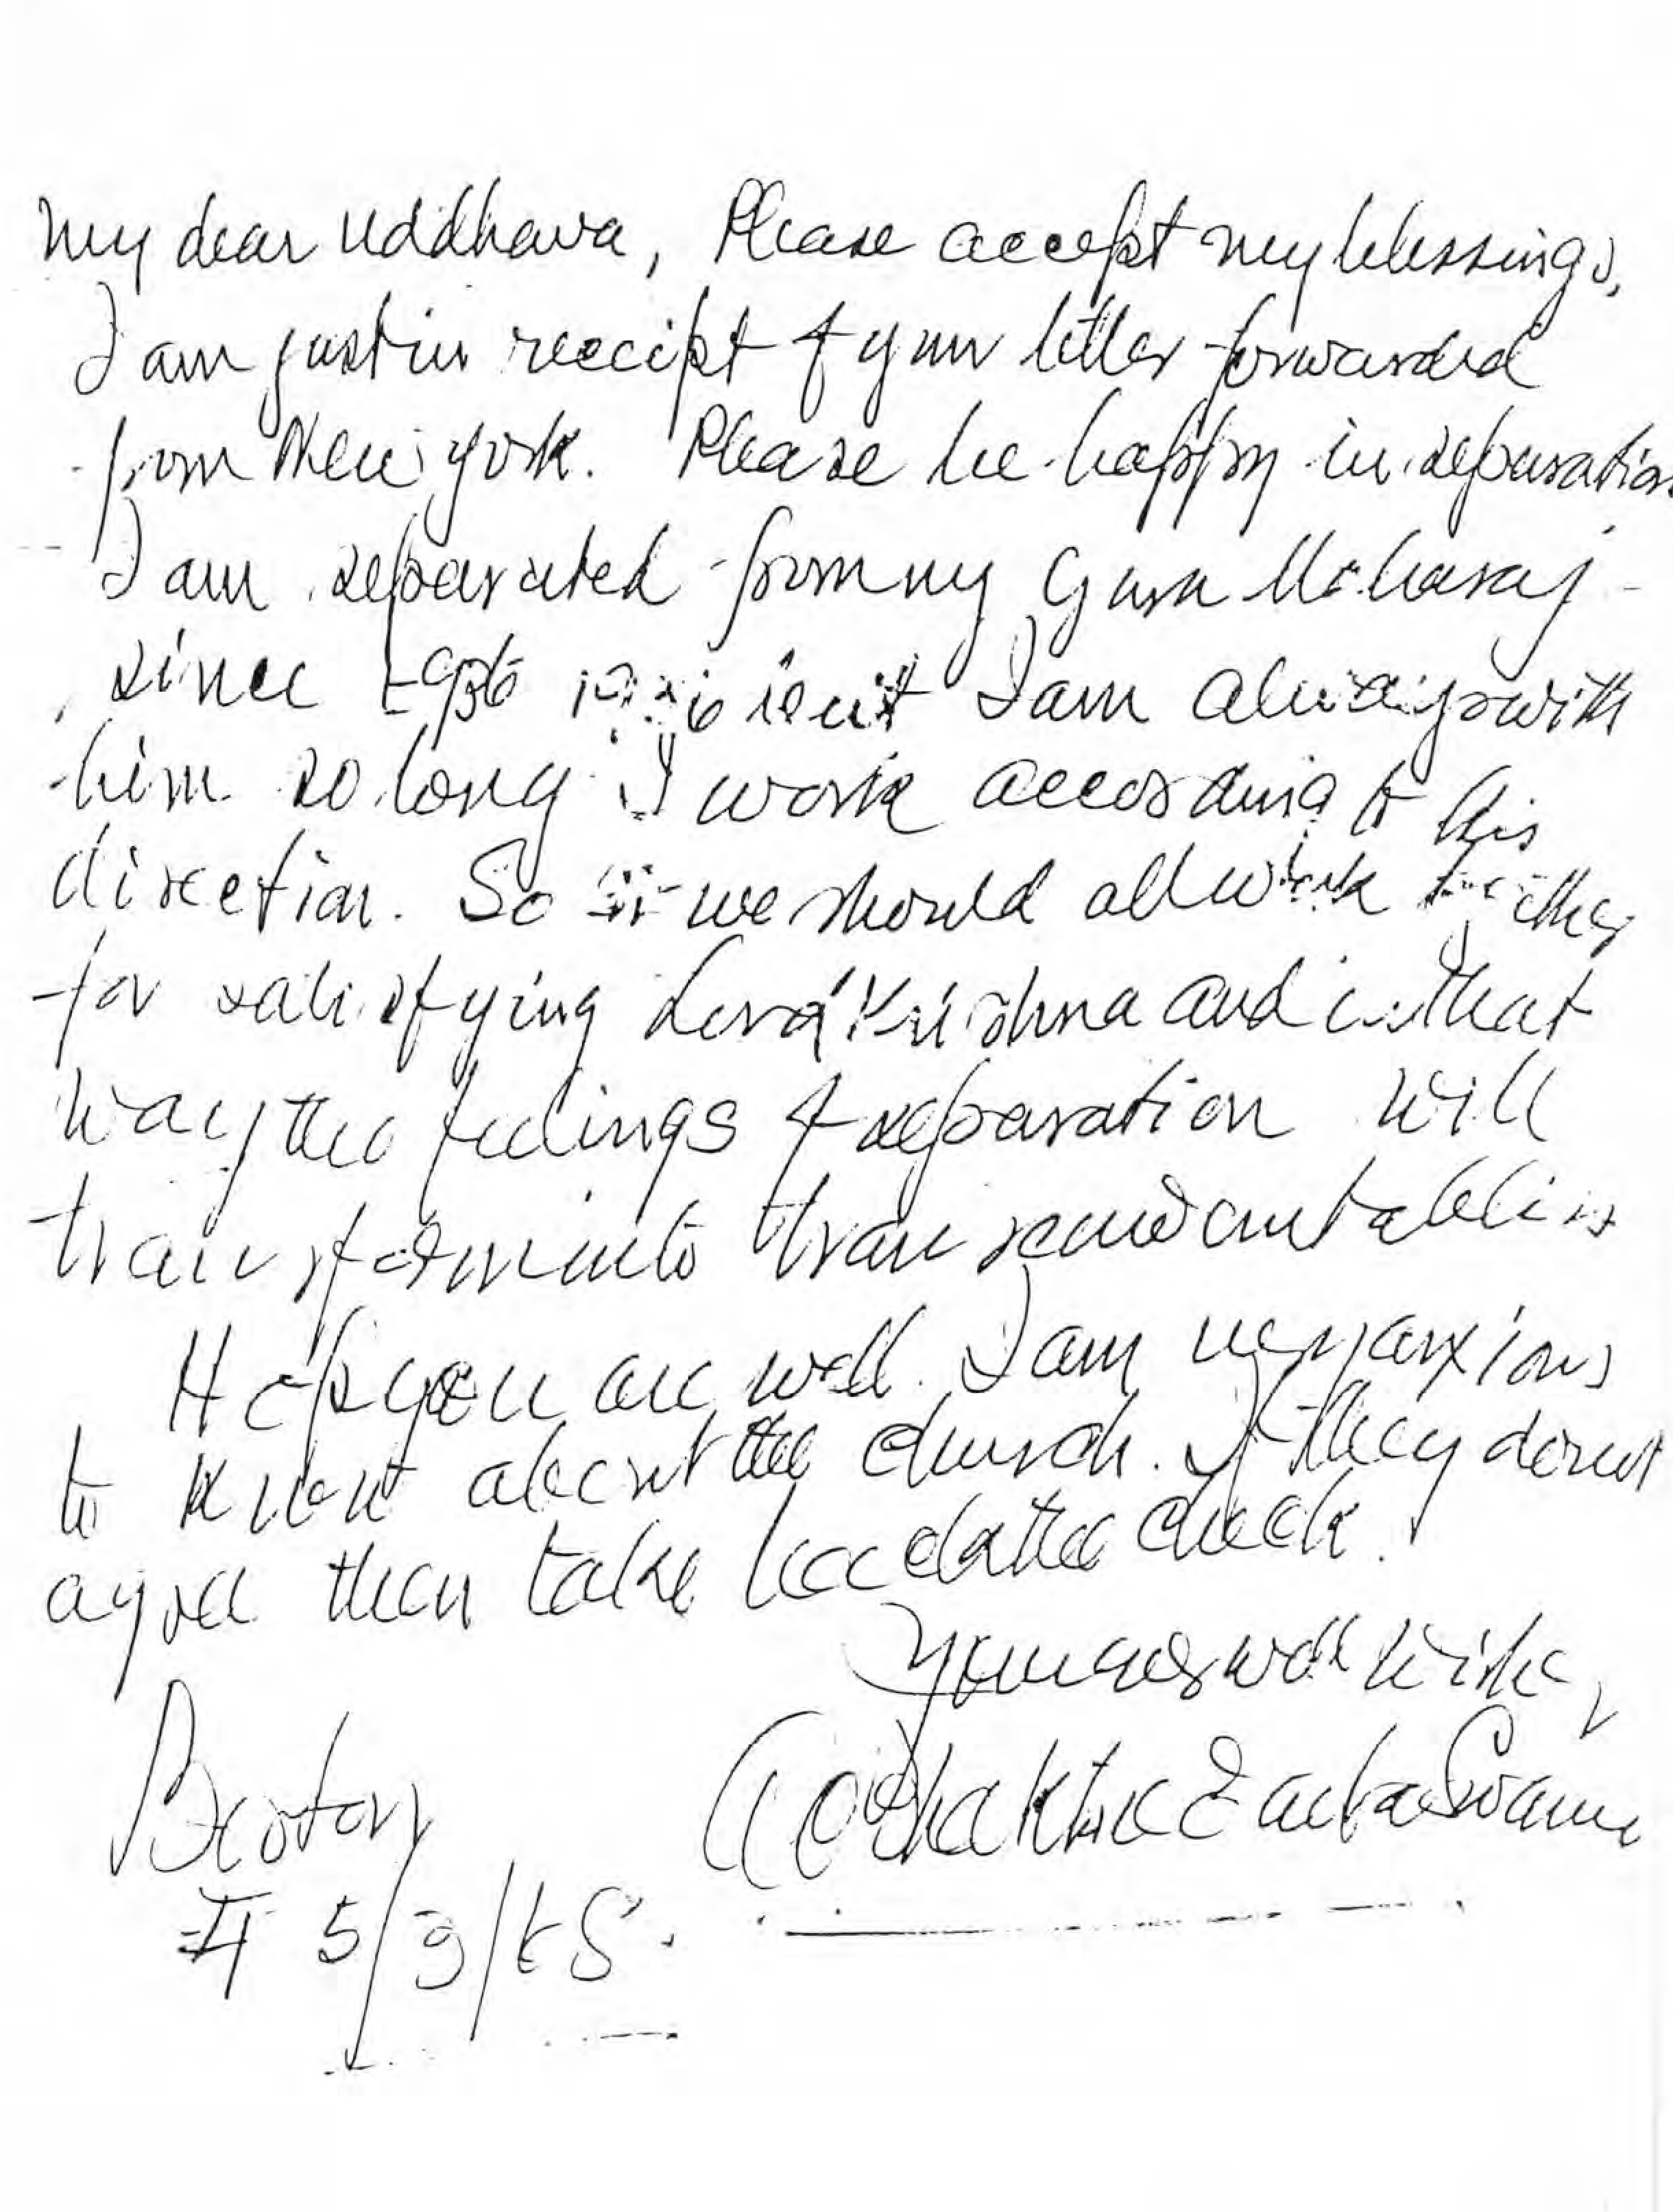 My dear Uddhava, Please accept my blessings.
I am just in receipt of your letter forwarded
from New york. Please be happy in separation.
I am separated from my Guru Maharaj
since 1936 but I am always with
him so long I work according to his
direction. So we should all work together
for satisfying Lord Krishna and in that
way the feelings of separation will
transform into transcendental bliss
Hope you are well. I am very anxious
to know about the church. If they do not
agree then take back the check.
Your ever well wisher,
Boston
A C Bhaktivedanta Swami
5/3/68.